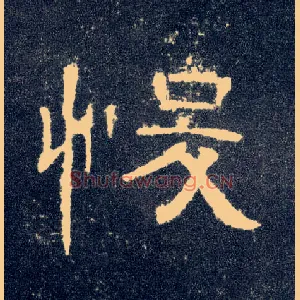 悮
Shufawang.CN